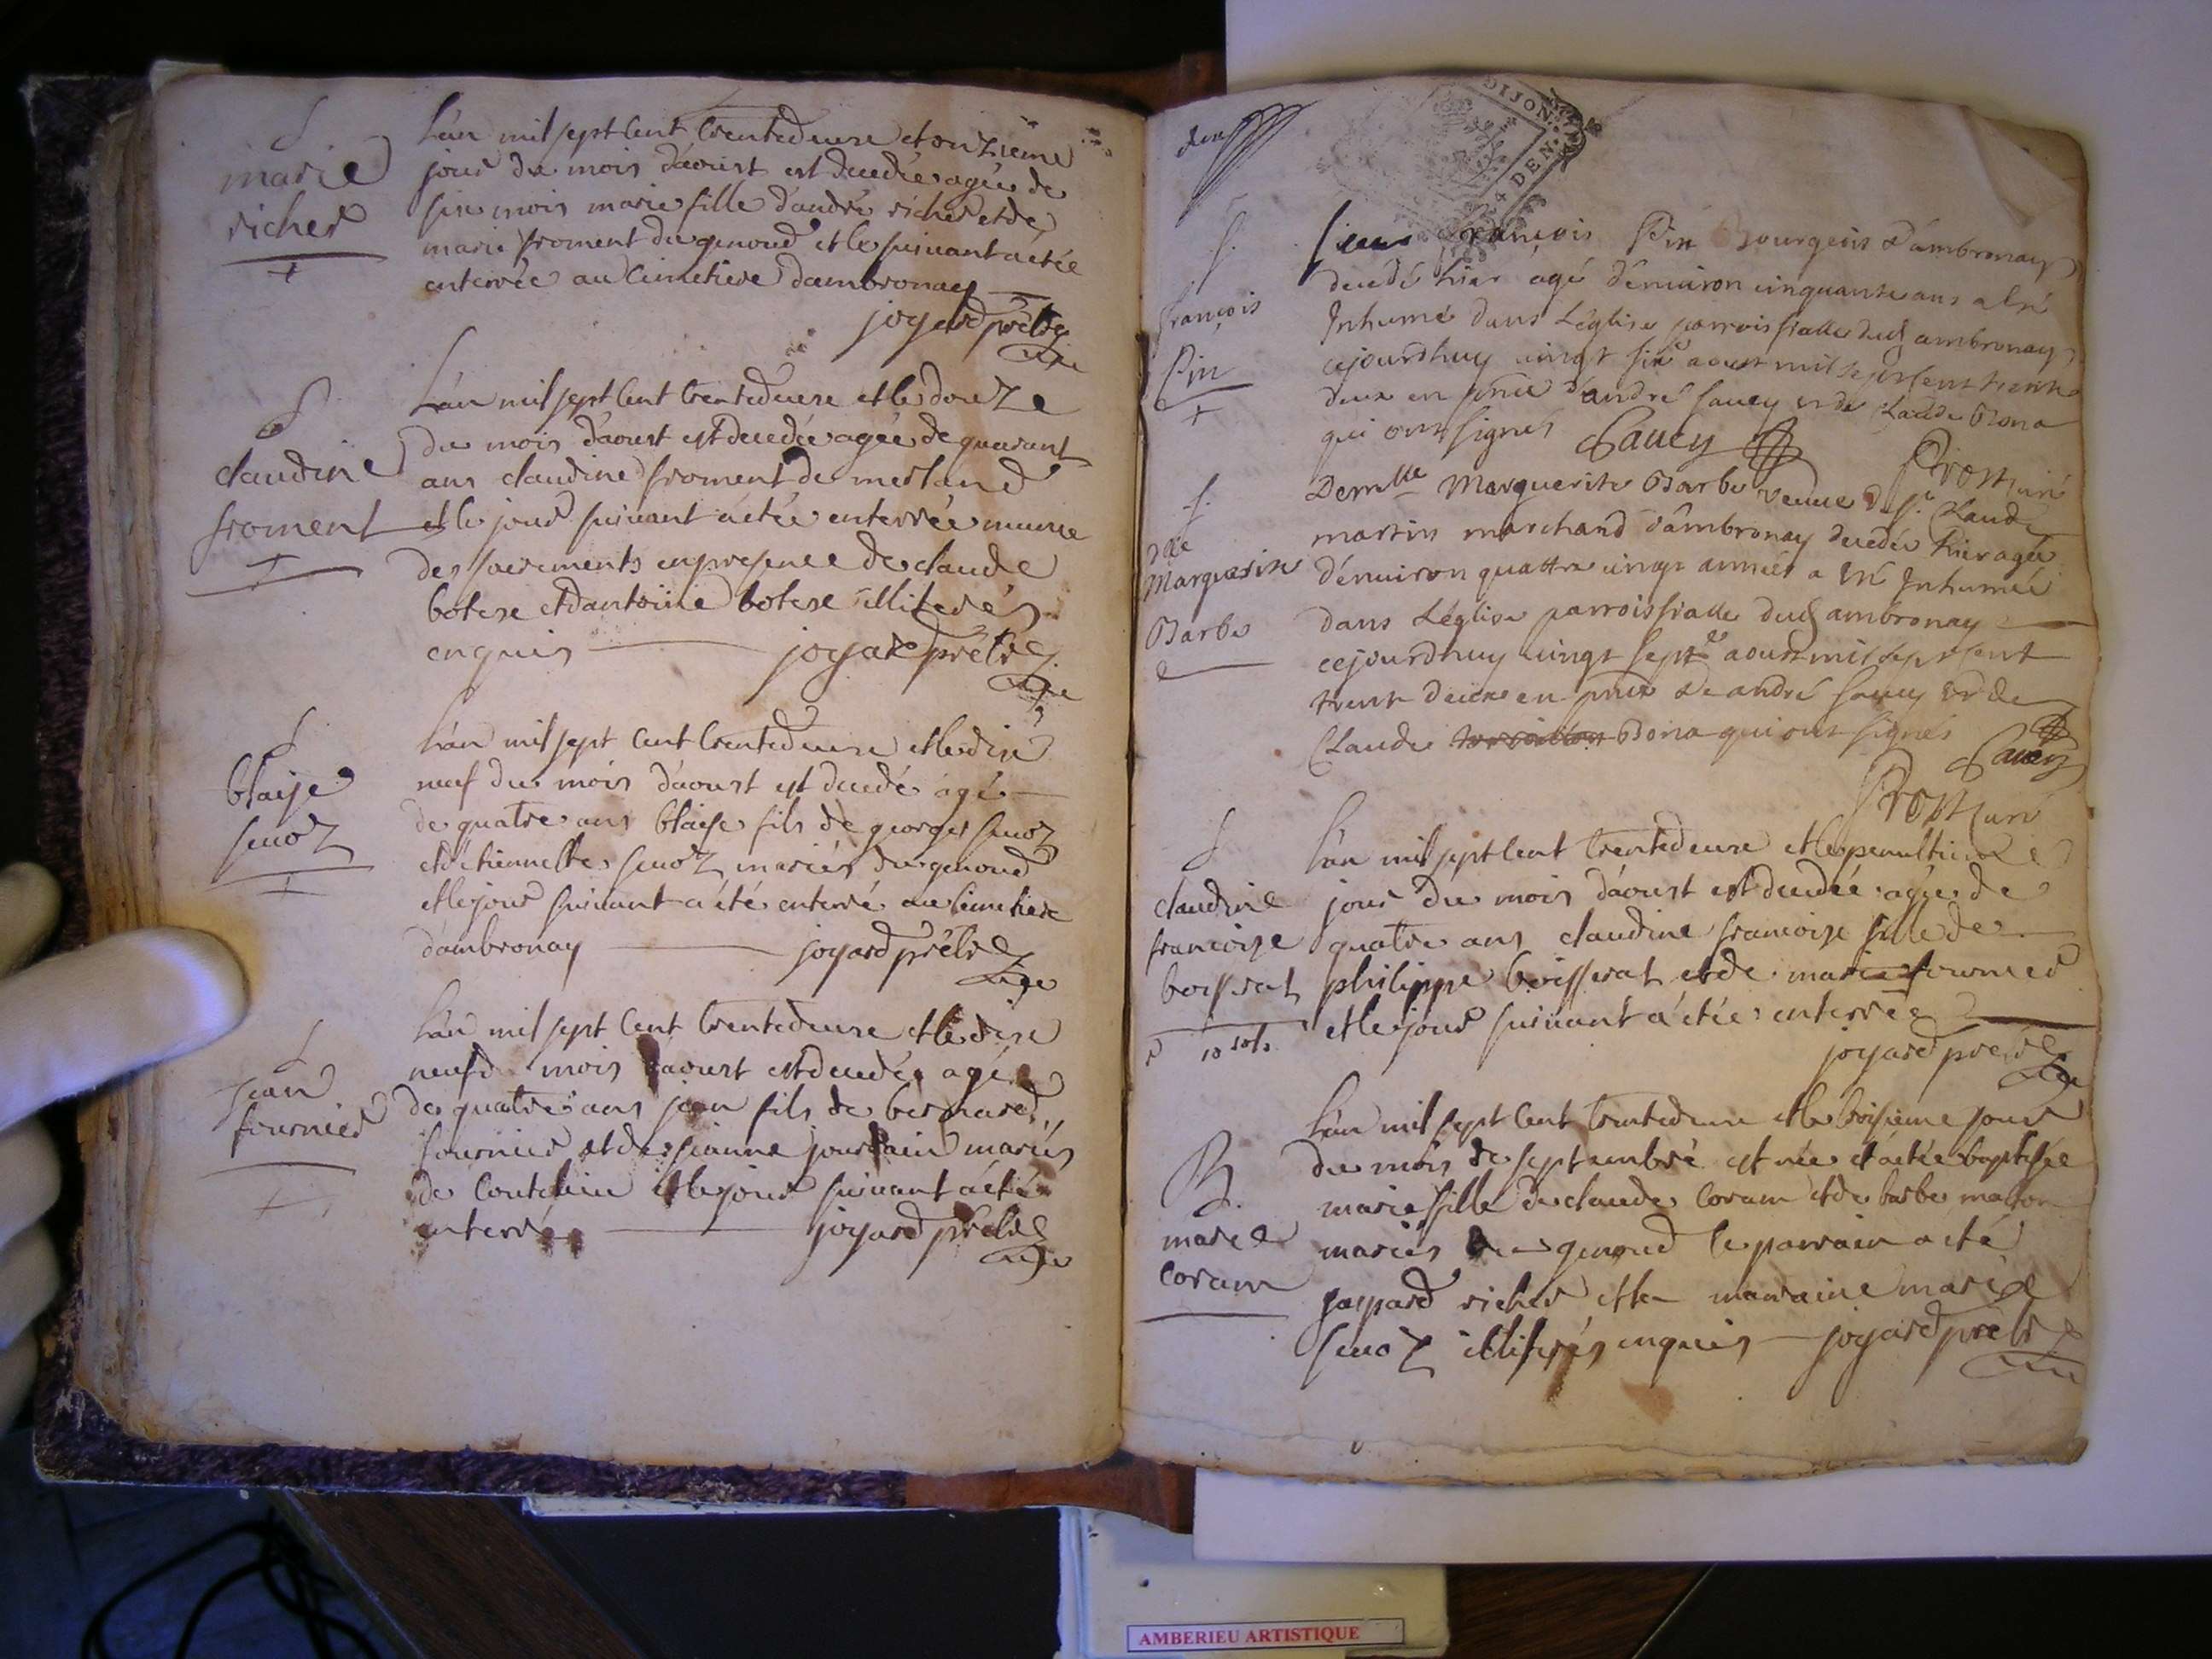 S
marie
richer
L'an mil sept Cent trentedeuxe et onzieme
jour du mois d'aoust est decedée agée de
six mois marie fille d'andré richer et de
marie froment du genoud et le suivant a étée
enterrée au Cimetiere d'ambronay
joyard prêtre
S
claudine
froment
L'an mil sept Cent trentedeuxe et le douze
du mois d'aoust est decedée agée de quarant
ans claudine froment de merland
et le jour suivant a étée enterrée munie
des sacrements en presence de claude
botexe et d'antoine botexe illiterés
enquis joyard prêtre
S
blaise
senoz
L'an mil sept Cent trentedeuxe et le dix
neuf du mois d'aoust est decedé agé
de quatre ans blaise fils de george senoz
et d'etiennette senoz mariés du genoud
et le jour suivant a été enterré au Cimetiere
d'ambronay joyard prêtre
S
jean
fournier
L'an mil sept Cent trentedeuxe et le dix
neuf d mois d'aoust est decedé agé
de quatre ans jean fils de bernard
fournier et de jeanne jourdain mariés
de Coutelieu et le jour suivant a été
enterré joyard prêtre
DIJON.
4 DEN.
S.
françois
Pin
Sieur françois Pin Bourgeois d'ambronay
decedé hier agé d'environ cinquante ans a Eté
Inhumé dans L'église parroissialle dud ambronay
cejourdhuy vingt six aoust mil sept sent trente
deux en pnce d'andré sauey et de Claude Bona
qui ont signés Sauey
Prost curé
S.
Dlle
Marguerite
Barbe
Demlle Marguerite Barbe veuve d sr. Claude
martin marchand d'ambronay decedée hier agée
d'environ quattre vingt années a Eté Inhumée
dans L'église parroissialle dud ambronay
cejourdhuy vingt sept aoust mil sept sent
trente deuxe en pnce de andré sauey et de
Claude Bona qui ont signés
Sauey
Prost curé
S
claudine
francoise
boisserat
10 sols
L'an mil sept Cent trentedeuxe et le penultieme
jour du mois d'aoust est decedée agée de
quatre ans claudine francoise fille de
philippe boisserat et de marie fournier
et le jour suivant a étée enterrée
joyard prêtre
B.
marie
Coram
L'an mil sept Cent trentedeuxe et le troisieme jour
du mois de septembre est née et a étée baptisée
marie fille de claude Coram et de barbe maton
mariés du genoud le parrain a été
gaspard richer et la marraine marie
senoz illiterés enquis joyard prêtre
AMBERIEU ARTISTIQUE